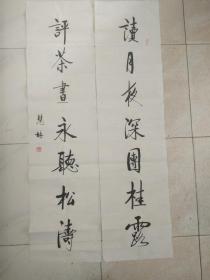 讀月夜深圍桂露
評茶晝永聽松濤